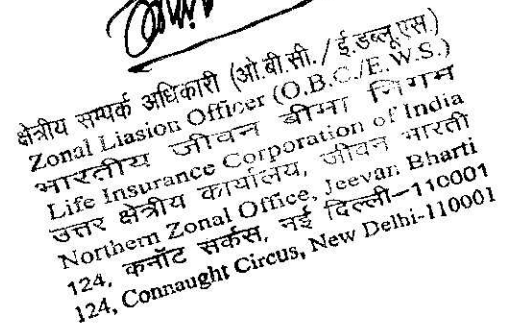 क्षेत्रीय सम्पर्क अधिकारी (ओ.बी.सी./ई.डब्लू.एस.)
Zonal Liasion Officer (O.B.C./E.W.S.)
भारतीय जीवन बीमा निगम
Life Insurance Corporation of India
उत्तर क्षेत्रीय कार्यालय, जीवन भारती
Northern Zonal Office, Jeevan Bharti
124, कनॉट सर्कस, नई दिल्ली–110001
124, Connaught Circus, New Delhi-110001